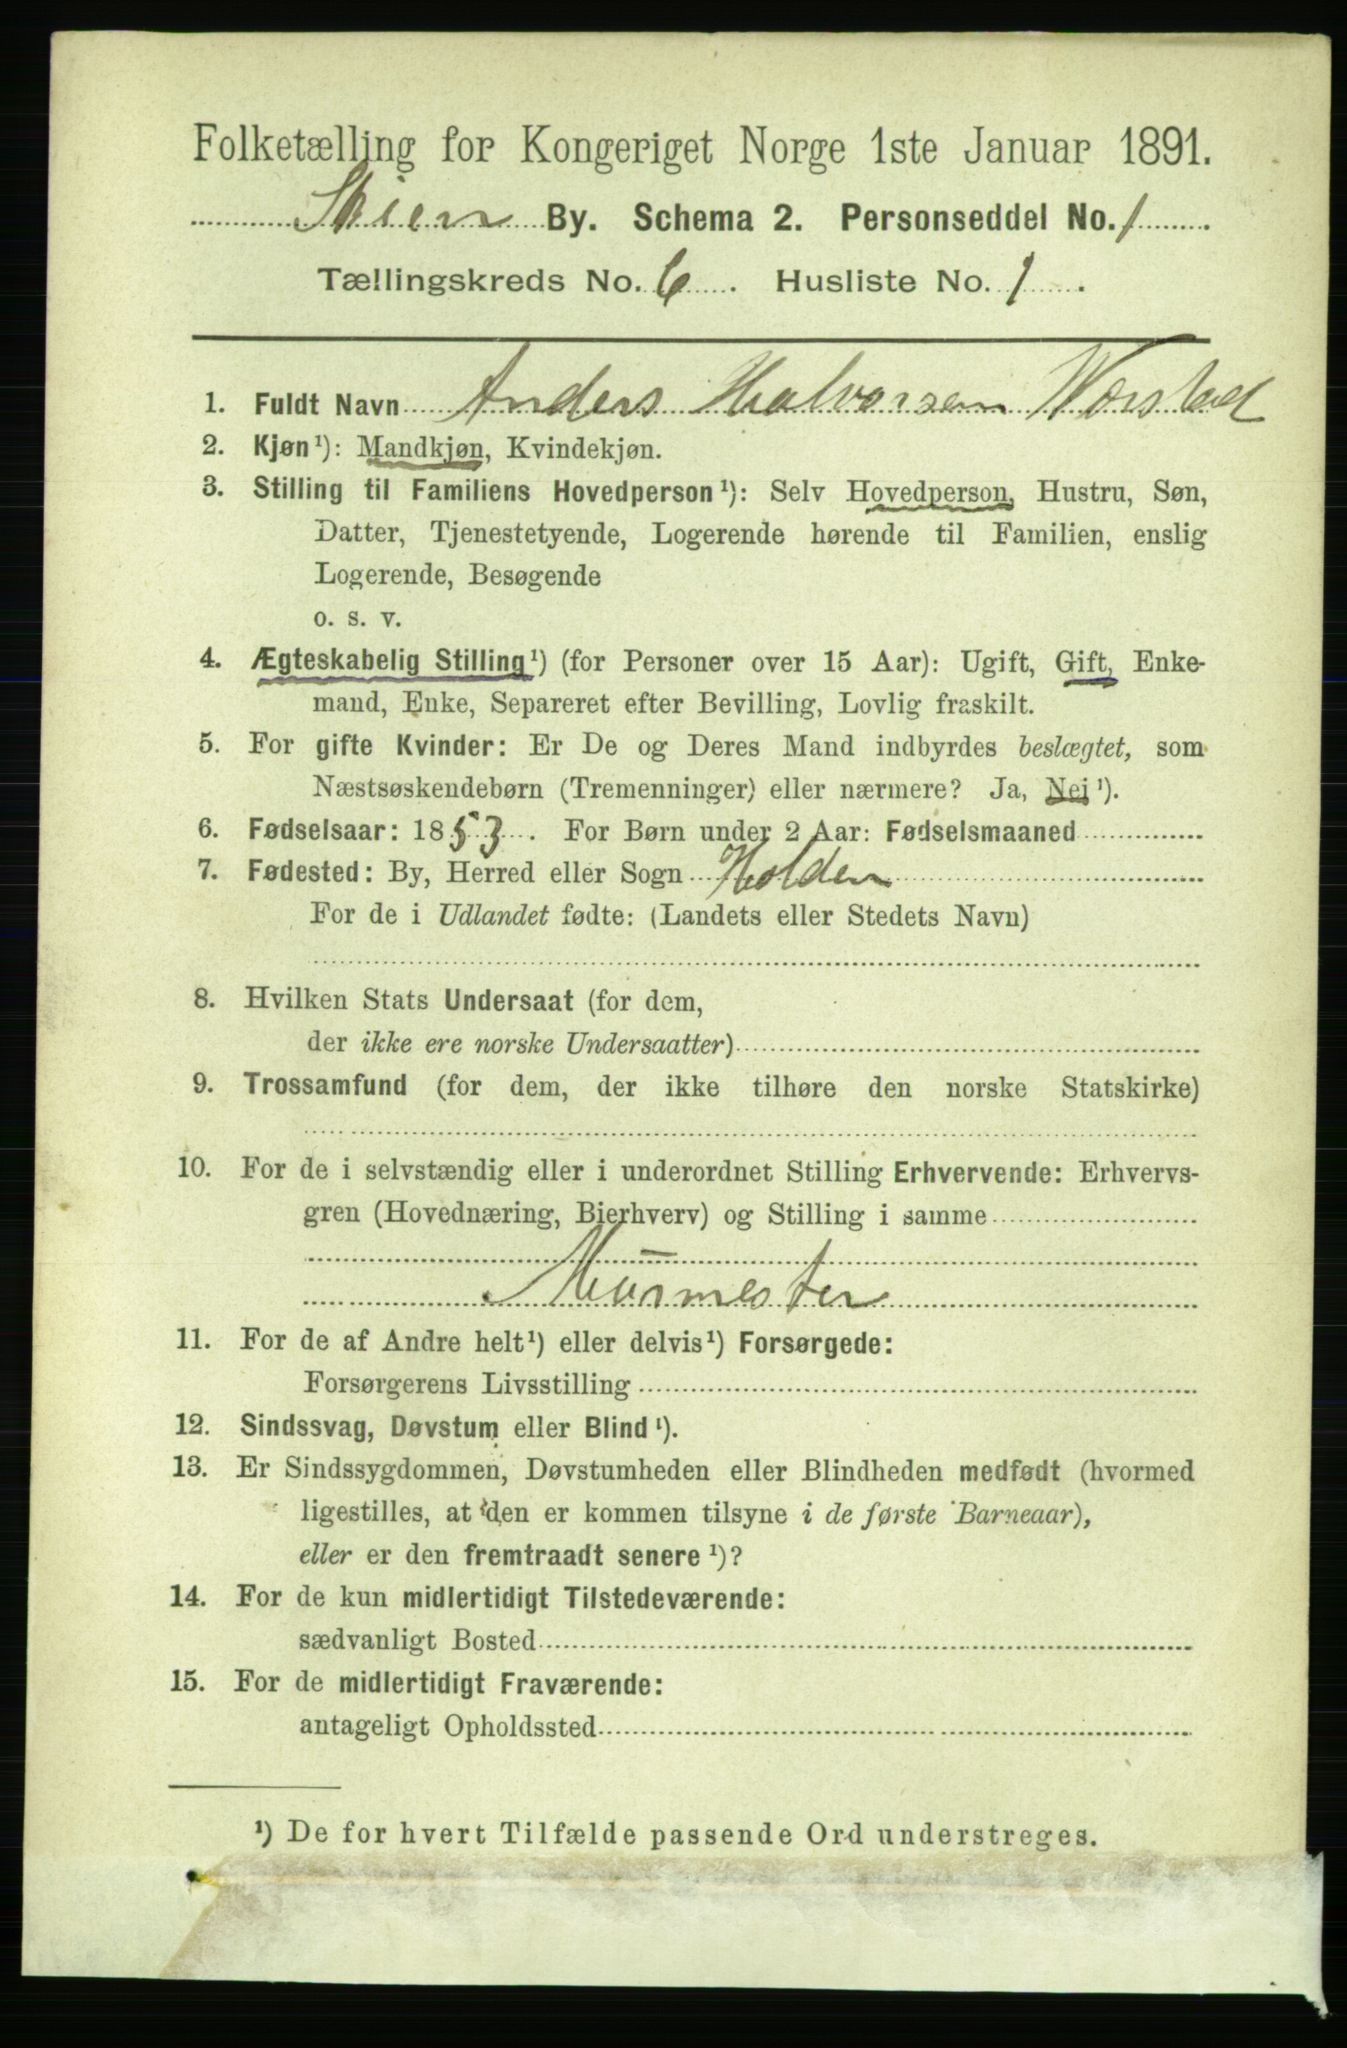 Folketælling for Kongeriget Norge 1ste Januar 1891.
Skien By. Schema 2. Personseddel No. 1
Tællingskreds No. 6. Husliste No. 1.
1. Fuldt Navn Anders Halvorsen Vorstad
2. Kjøn¹): Mandkjøn, Kvindekjøn.
3. Stilling til Familiens Hovedperson¹): Selv Hovedperson, Hustru, Søn,
Datter, Tjenestetyende, Logerende hørende til Familien, enslig
Logerende, Besøgende
o. s. v.
4. Ægteskabelig Stilling¹) (for Personer over 15 Aar): Ugift, Gift, Enke-
mand, Enke, Separeret efter Bevilling, Lovlig fraskilt.
5. For gifte Kvinder: Er De og Deres Mand indbyrdes beslægtet, som
Næstsøskendebørn (Tremenninger) eller nærmere? Ja, Nei¹).
6. Fødselsaar: 1853. For Børn under 2 Aar: Fødselsmaaned
7. Fødested: By, Herred eller Sogn Holden
For de i Udlandet fødte: (Landets eller Stedets Navn)
8. Hvilken Stats Undersaat (for dem,
der ikke ere norske Undersaatter)
9. Trossamfund (for dem, der ikke tilhøre den norske Statskirke)
10. For de i selvstændig eller i underordnet Stilling Erhvervende: Erhvervs-
gren (Hovednæring, Bierhverv) og Stilling i samme
Murmester
11. For de af Andre helt¹) eller delvis¹) Forsørgede:
Forsørgerens Livsstilling
12. Sindssvag, Døvstum eller Blind¹).
13. Er Sindssygdommen, Døvstumheden eller Blindheden medfødt (hvormed
ligestilles, at den er kommen tilsyne i de første Barneaar),
eller er den fremtraadt senere¹)?
14. For de kun midlertidigt Tilstedeværende:
sædvanligt Bosted
15. For de midlertidigt Fraværende:
antageligt Opholdssted
¹) De for hvert Tilfælde passende Ord understreges.